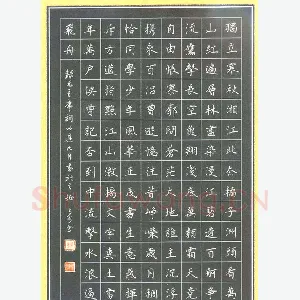 獨立寒秋湘江北去橘子洲頭看萬
山紅遍層林盡染漫江碧透百舸爭
流鷹擊長空魚翔淺底萬類霜天競
自由悵寥廓問蒼茫大地誰主沉浮
攜來百侶曾遊憶往昔崢嶸歲月稠
恰同學少年風華正茂書生意氣揮
斥方遒指點江山激揚文字糞土當
年萬戶侯曾記否到中流擊水浪遏
飛舟